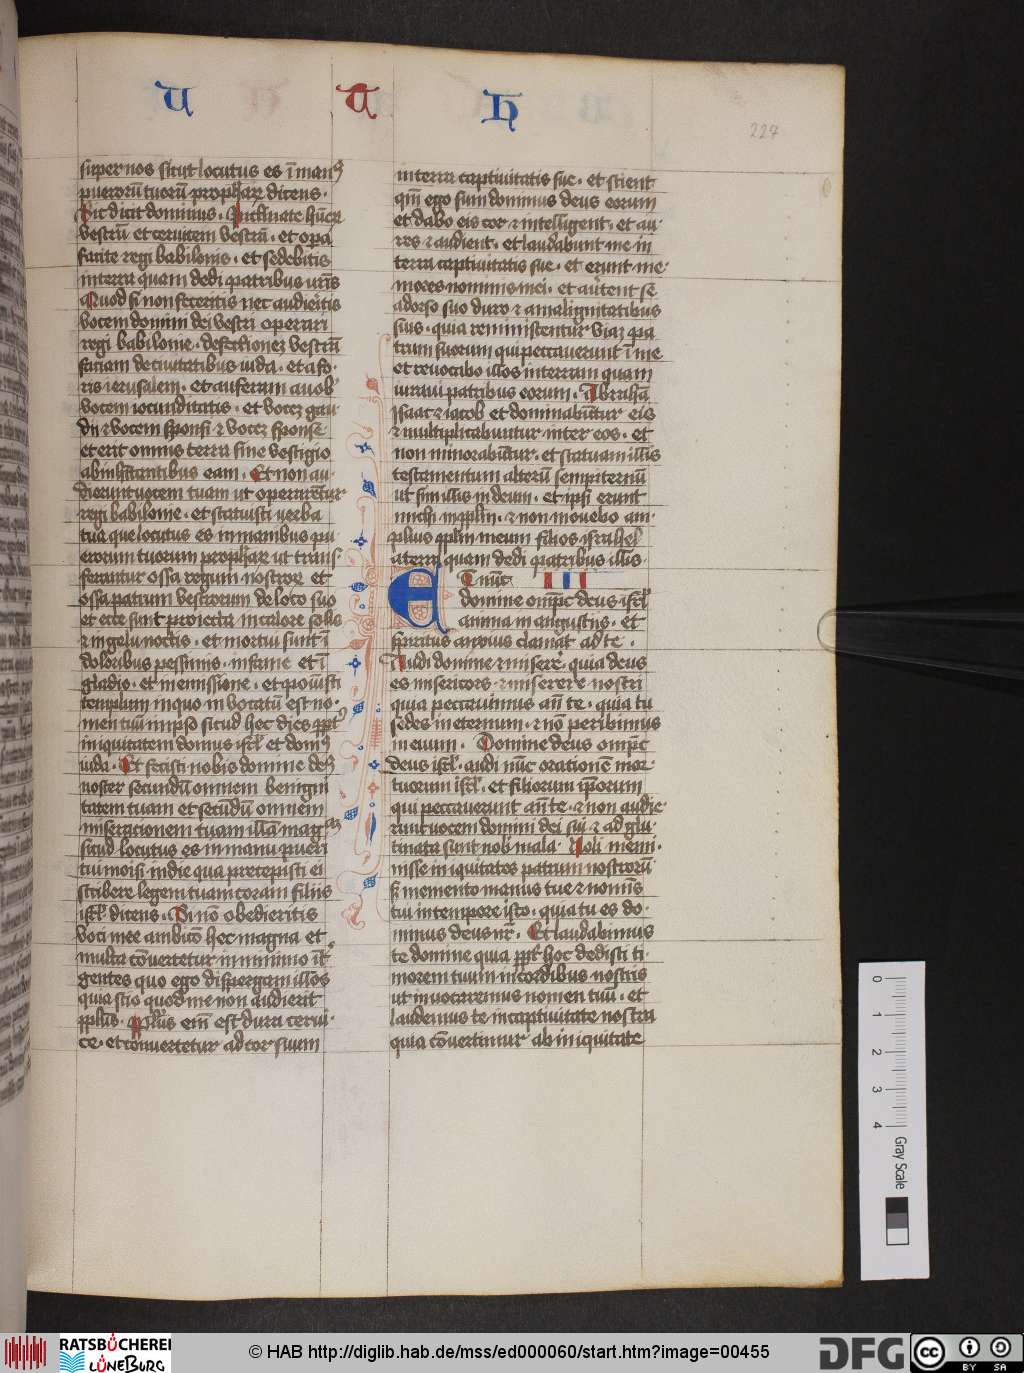 U A H
227
super nos sicut locutus es ī manꝰ
puerorū tuorū prophar dicens·
Sic dicit dominus· Inclinate hūer
vestrū et cervicem vestrā· et opa
facite regi babilonis· et sedebitis
in terra quam dedi patribus vr̄is
Quod si non feceritis nec audieitis
vocem domini dei vestri operari
regi babilonie· defectionez vestrū
faciam de civitatibus iuda· et a fo·
ris ierusalem· et auferam a vob
vocem iocunditatis· et vocez gau
dii et vocem sponsi et vocez sponse
et erit omnis terra sine vestigio
ab inhitantibus eam· Et non au·
dierunt vocem tuam ut operarētur
regi babilonie· et statuisti verba
tua que locutus es in manibus pu
erorum tuorum prophar ut trans·
ferantur ossa regum nostror et
ossa patrum vestrorum de loco suo
et ecce sunt proiecta in calore solis
et in gelu noctis· et mortui sunt ī
doloribus pessimis· in fame et ī
gladio· et in emissione· et posuisti
templum in quo invocatū est no·
men tuū in ipso sicud hec dies ppt
iniquitatem domus isrl et domꝰ
iuda· Et fecisti nobis domine deꝰ
noster secundū omnem benigni
tatem tuam et secūdū omnem
miseracionem tuam illā magnaz
sicud locutus es in manu pueri
tui moisi in die qua precepisti ei
scribere legem tuam coram filiis
isrl dicens· Si nō obedieritis
voci mee ambitō hec magna et
multa cōvertetur in minimo īt
gentes quo ego dispergam illos
quia scio quod me non audierit
ppl̄us· Ppl̄us eni est dura cervi·
ce· et convertetur ad cor suum
in terra captivitatis sue· et scient
qm̄ ego sum dominus deus eorum
et dabo eis cor et intelligent· et au·
res et audient· et laudabunt me in
terra captivitatis sue· et erunt me·
mores nominis mei· et avtent se
a dorso suo duro et a malignitatibus
suis· quia reminiscentur viaz pa
trum suorum qui peccaverunt ī me
et revocabo illos in terram quam
iuravi patribus eorum· Abrahā
Isaac et iacob et dominabūtur eis
et multiplicabuntur inter eos· et
non minorabūtur· et statuam illis
testamentum alterū sempiternū
ut sim illis in deum· et ipsi erunt
michi in pplm· et non movebo am·
plius pplm meum filios israhel
a terra quam dedi patribus illis·
Et nūc III
domine omp̄c deus isrl
anima in angustiis· et
spiritus anxius clamat ad te·
Audi domine et misere quia deus
es misericors· et miserere nostri
quia peccavimus an̄ te· quia tu
sedes in eternum· et nō peribimus
in evum· Domine deus omp̄c
deus isrl· audi nūc orationē mor
tuorum isrl· et filiorum ip̄orum
qui peccaverunt an̄ te· et non audie
runt vocem domini dei sui et ad glu·
tinata sunt nob mala· Noli memi·
nisse iniquitates patrum nostrorū
s memento manus tue et nominis
tui in tempore isto· quia tu es do·
minus deus nr̄· Et laudabimus
te domine quia ppt hoc dedisti ti·
morem tuum in cordibus nostris
ut invocaremus nomen tuū· et
laudemus te in captivitate nostra
quia cōvertimur ab iniquitate
0
1
2
3
4
Gray Scale
RATSBÜCHEREI
LÜNEBURG
© HAB http://diglib.hab.de/mss/ed000060/start.htm?image=00455
DFG
cc BY SA